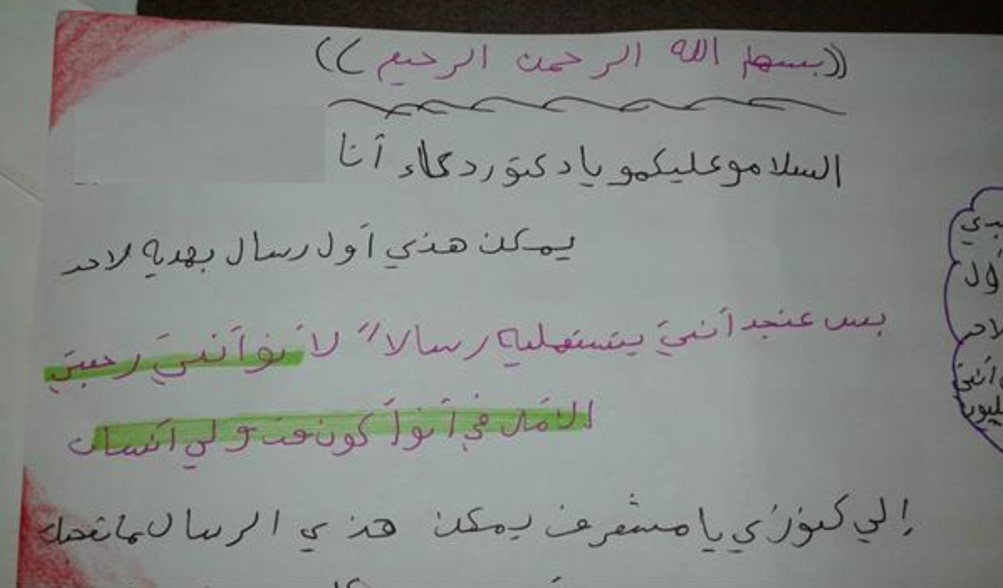 ((بسم الله الرحمن الرحيم))
السلامو عليكمو يا دكتور دعاء أنا
يمكن هذي أول رسال بهديه لاحد
بس عنجد أنتي يتستهليه رسالاً لأنو أنتي رجعتي
الأمل في أنوا كون قدولي انسان
إلي كبوزي يا مشرف يمكن هذي الرسال ما تعجبك
بدي
أول
لاحد
أنتي
مليون